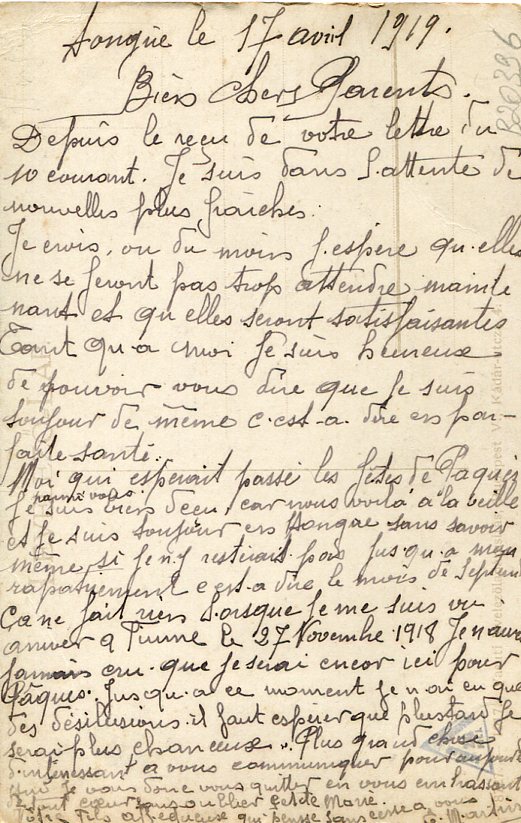 Hongrie le 17 avril 1919.
Bien chers Parents.
Depuis le reçu de votre lettre du
10 courant. Je suis dans l'attente de
nouvelles plus fraîches.
Je crois, ou du moins j'espère qu'elles
ne se feront pas trop attendre mainte
nant et qu'elles seront satisfaisantes
Tant qu-a moi Je suis heureux
de pouvoir vous dire que Je suis
toujour de même c-est-a-dire en par-
faite santé.
Moi qui esperait passé les fêtes de Paques
parmi vous.
Je suis bien deçu, car nous voilà à la veille
et Je suis toujour en Hongrie sans savoir
même si Je n-y resterait pas jusqu-a mon
rapatriement c-est-a dire le mois de Septem
Ça ne fait rien Lorsque Je me suis vu
arriver a Fiume le 27 Novembre 1918 Je n'aura
jamais cru que Je serai encor ici pour
Pâques. Jusqu-a ce moment Je n-ai eu que
des désillusions il faut espérer que plus tard Je
serai plus chanceux. Plus grand chose
d'intéressant a vous communiquer pour aujourd
Je vais donc vous quitter en vous embrassant
de tout cœur sans oublier petite Marie.
Votre fils affectueux qui pense sans cesse a vous
E. Martin
R20396